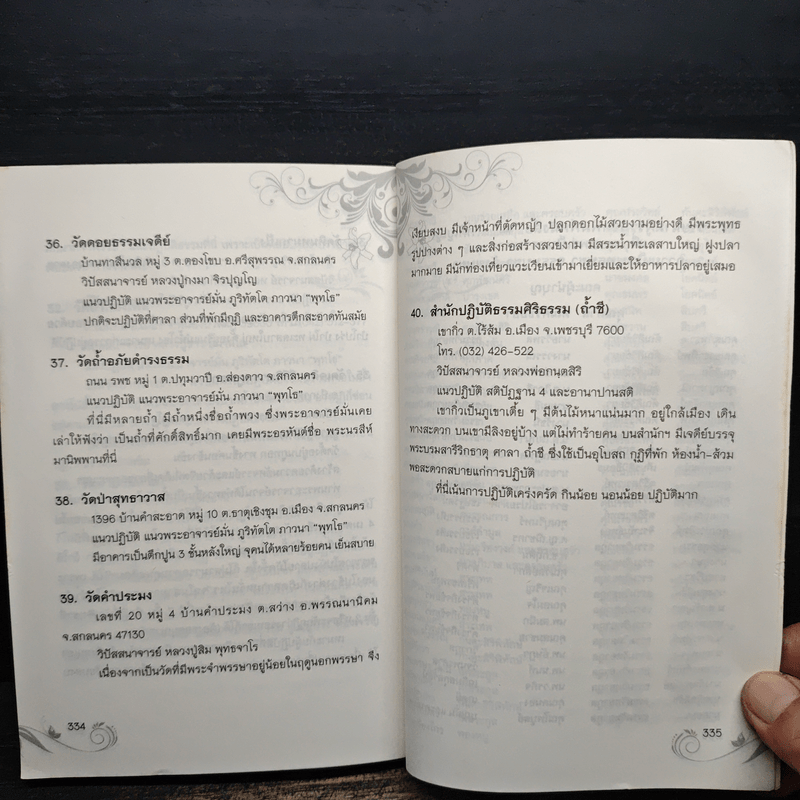 36. วัดดอยธรรมเจดีย์
บ้านทาสีนวล หมู่ 3 ต.ตองโขบ อ.ศรีสุพรรณ จ.สกลนคร
วิปัสสนาจารย์ หลวงปู่กงมา จิรปุญฺโญ
แนวปฏิบัติ แนวพระอาจารย์มั่น ภูริทัตโต ภาวนา "พุทโธ"
ปกติจะปฏิบัติที่ศาลา ส่วนที่พักมีกุฏิ และอาคารตึกสะอาดทันสมัย
37. วัดถ้ำอภัยดำรงธรรม
ถนน รพช หมู่ 1 ต.ปทุมวาปี อ.ส่องดาว จ.สกลนคร
แนวปฏิบัติ แนวพระอาจารย์มั่น ภาวนา "พุทโธ"
ที่นี่มีหลายถ้ำ มีถ้ำหนึ่งชื่อถ้ำพวง ซึ่งพระอาจารย์มั่นเคย
เล่าให้ฟังว่า เป็นถ้ำที่ศักดิ์สิทธิ์มาก เคยมีพระอรหันต์ชื่อ พระนรสีห์
มานิพพานที่นี่
38. วัดป่าสุทธาวาส
1396 บ้านคำสะอาด หมู่ 10 ต.ธาตุเชิงชุม อ.เมือง จ.สกลนคร
แนวปฏิบัติ แนวพระอาจารย์มั่น ภูริทัตโต ภาวนา "พุทโธ"
มีอาคารเป็นตึกปูน 3 ชั้นหลังใหญ่ จุคนได้หลายร้อยคน เย็นสบาย
39. วัดคำประมง
เลขที่ 20 หมู่ 4 บ้านคำประมง ต.สว่าง อ.พรรณนานิคม
จ.สกลนคร 47130
วิปัสสนาจารย์ หลวงปู่สิม พุทธจาโร
เนื่องจากเป็นวัดที่มีพระจำพรรษาอยู่น้อยในฤดูนอกพรรษา จึง
334
เงียบสงบ มีเจ้าหน้าที่ตัดหญ้า ปลูกดอกไม้สวยงามอย่างดี มีพระพุทธ
รูปปางต่าง ๆ และสิ่งก่อสร้างสวยงาม มีสระน้ำทะเลสาบใหญ่ ฝูงปลา
มากมาย มีนักท่องเที่ยวแวะเวียนเข้ามาเยี่ยมและให้อาหารปลาอยู่เสมอ
40. สำนักปฏิบัติธรรมศิริธรรม (ถ้ำชี)
เขากิ่ว ต.ไร่ส้ม อ.เมือง จ.เพชรบุรี 7600
โทร. (032) 426-522
วิปัสสนาจารย์ หลวงพ่อกนฺตสิริ
แนวปฏิบัติ สติปัฏฐาน 4 และอานาปานสติ
เขากิ่วเป็นภูเขาเตี้ย ๆ มีต้นไม้หนาแน่นมาก อยู่ใกล้เมือง เดิน
ทางสะดวก บนเขามีลิงอยู่บ้าง แต่ไม่ทำร้ายคน บนสำนักฯ มีเจดีย์บรรจุ
พระบรมสารีริกธาตุ ศาลา ถ้ำชี ซึ่งใช้เป็นอุโบสถ กุฏิที่พัก ห้องน้ำ-ส้วม
พอสะดวกสบายแก่การปฏิบัติ
ที่นี่เน้นการปฏิบัติเคร่งครัด กินน้อย นอนน้อย ปฏิบัติมาก
335